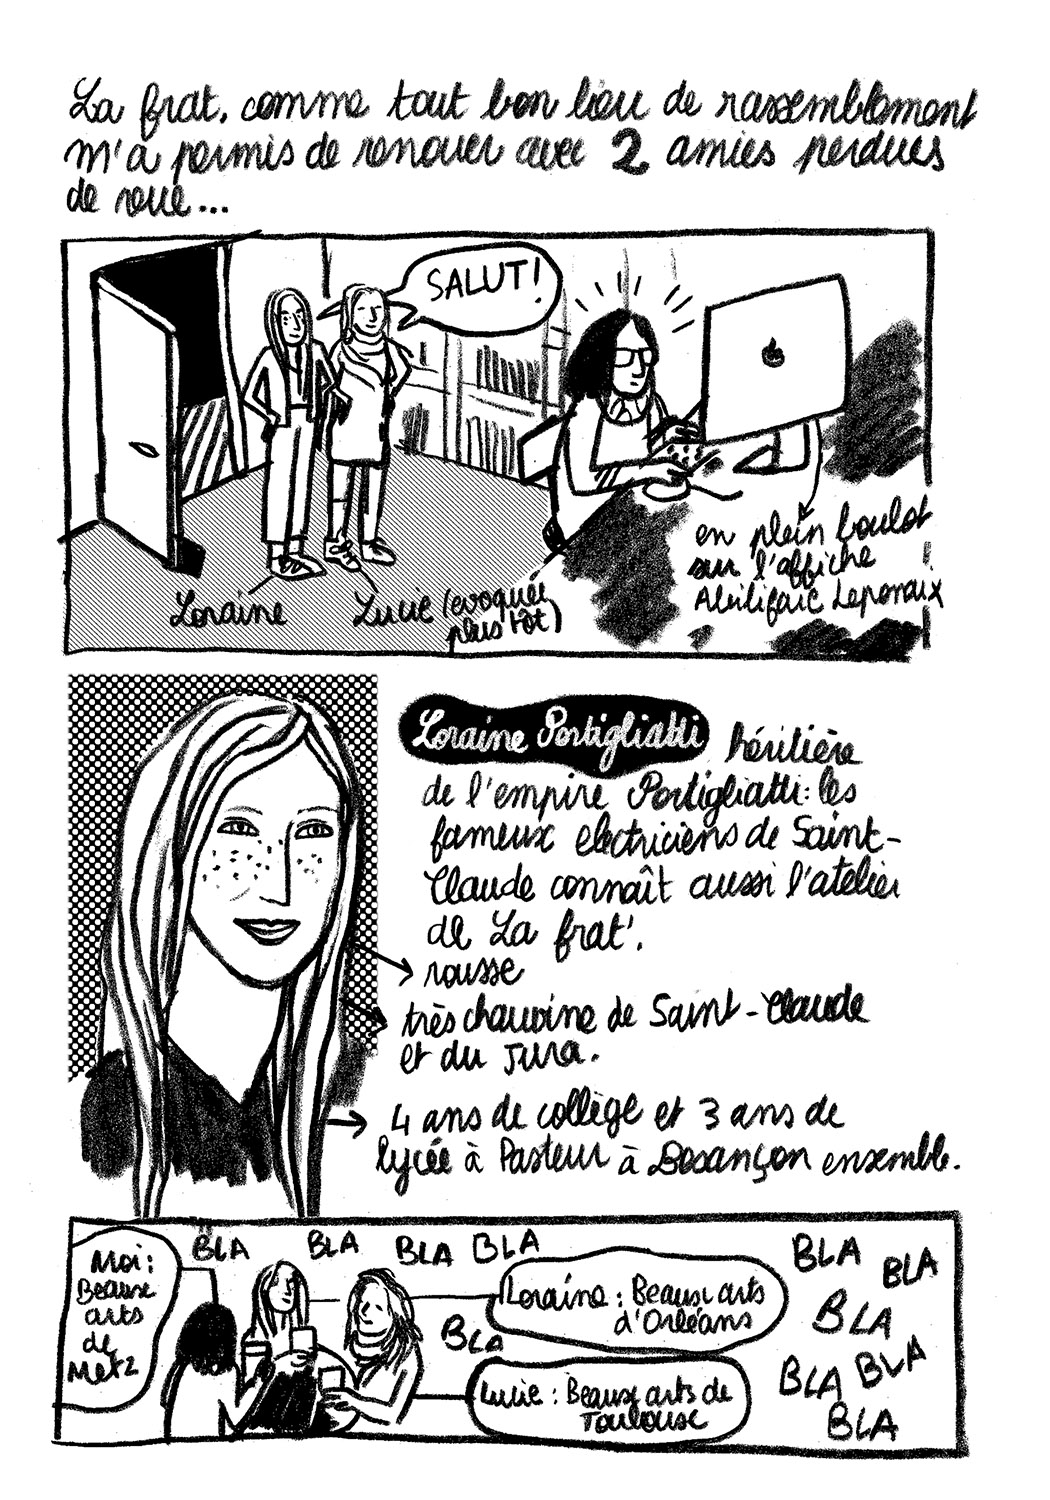 La frat, comme tout bon lieu de rassemblement
m'a permis de renouer avec 2 amies perdues
de vue...
SALUT!
Loraine
Lucie (évoquée
plus tôt)
en plein boulot
sur l'affiche
Loraine Portigliatti héritière
de l'empire Portigliatti: les
fameux electriciens de Saint-
Claude connaît aussi l'atelier
de La frat'.
rousse
très chauvine de Saint-Claude
et du Jura.
4 ans de collège et 3 ans de
lycée à Pasteur à Besançon ensemble.
Moi:
Beaux
arts
de
Metz
BLA BLA BLA BLA
BLA
Loraine: Beaux arts
d'Orléans
Lucie: Beaux arts de
Toulouse
BLA
BLA
BLA
BLA BLA
BLA